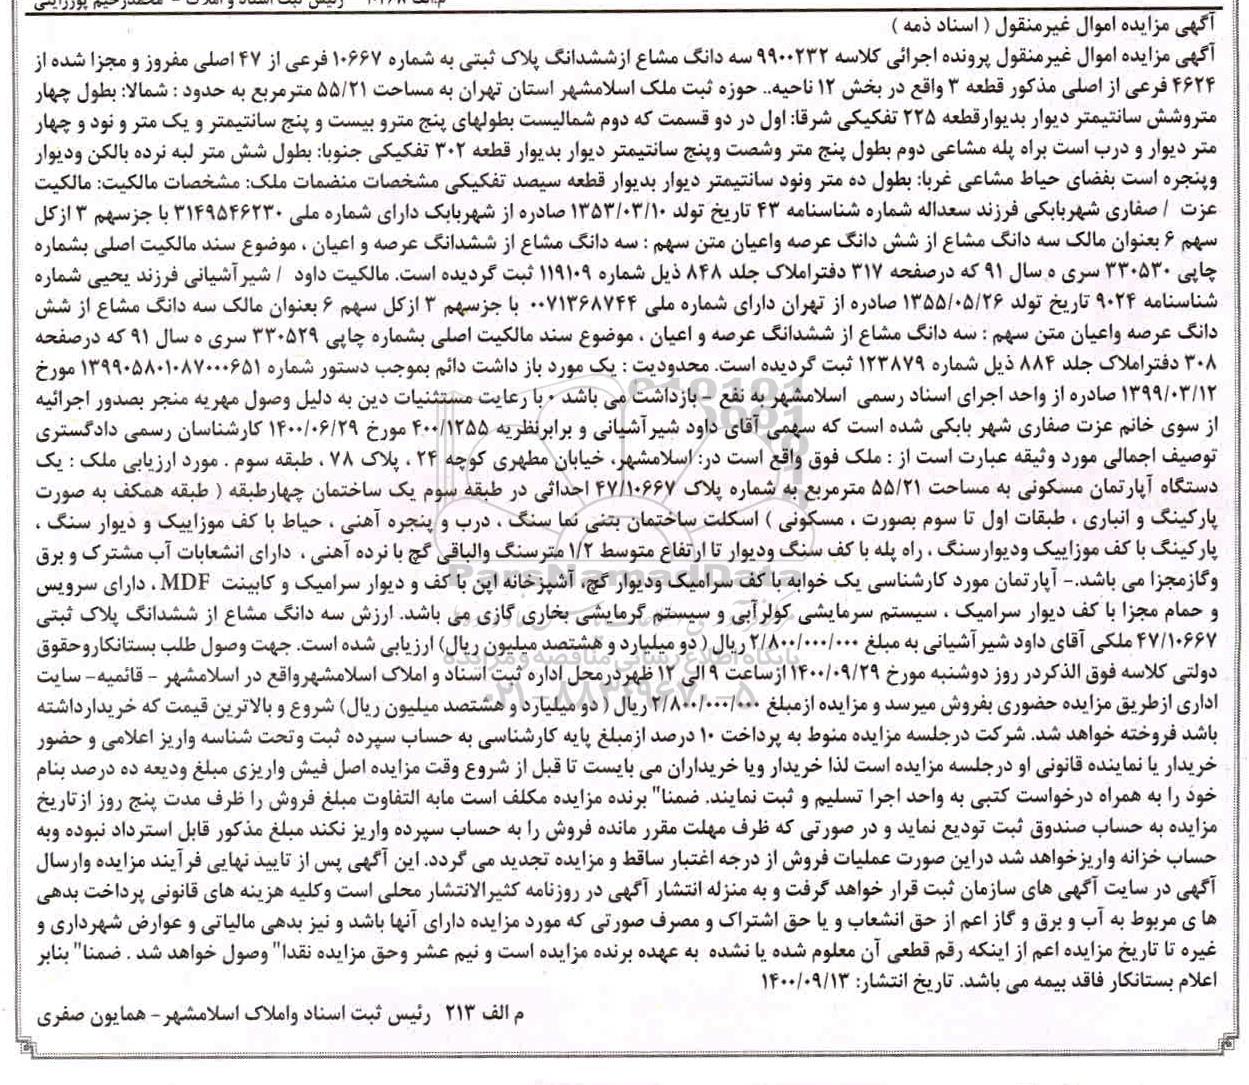 آگهی مزایده اموال غیرمنقول ( اسناد ذمه )
آگهی مزایده اموال غیرمنقول پرونده اجرائی کلاسه ۹۹۰۰۲۳۲ سه دانگ مشاع ازششدانگ پلاک ثبتی به شماره ۱۰۶۶۷ فرعی از ۴۷ اصلی مفروز و مجزا شده از
۴۶۲۴ فرعی از اصلی مذکور قطعه ۳ واقع در بخش ۱۲ ناحیه.. حوزه ثبت ملک اسلامشهر استان تهران به مساحت ۵۵/۲۱ مترمربع به حدود : شمالا: بطول چهار
متروشش سانتیمتر دیوار بدیوارقطعه ۲۲۵ تفکیکی شرقا: اول در دو قسمت که دوم شمالیست بطولهای پنج مترو بیست و پنج سانتیمتر و یک متر و نود و چهار
متر دیوار و درب است براه پله مشاعی دوم بطول پنج متر وشصت وپنج سانتیمتر دیوار بدیوار قطعه ۳۰۲ تفکیکی جنوبا: بطول شش متر لبه نرده بالکن ودیوار
وپنجره است بفضای حیاط مشاعی غربا: بطول ده متر ونود سانتیمتر دیوار بدیوار قطعه سیصد تفکیکی مشخصات منضمات ملک: مشخصات مالکیت: مالکیت
عزت / صفاری شهربابکی فرزند سعداله شماره شناسنامه ۴۳ تاریخ تولد ۱۳۵۳/۰۳/۱۰ صادره از شهربابک دارای شماره ملی ۳۱۴۹۵۴۶۲۳۰ با جزسهم ۳ ازکل
سهم ۶ بعنوان مالک سه دانگ مشاع از شش دانگ عرصه واعیان متن سهم : سه دانگ مشاع از ششدانگ عرصه و اعیان ، موضوع سند مالکیت اصلی بشماره
چاپی ۳۳۰۵۳۰ سری ه سال ۹۱ که درصفحه ۳۱۷ دفتراملاک جلد ۸۴۸ ذیل شماره ۱۱۹۱۰۹ ثبت گردیده است. مالکیت داود / شیرآشیانی فرزند یحیی شماره
شناسنامه ۹۰۲۴ تاریخ تولد ۱۳۵۵/۰۵/۲۶ صادره از تهران دارای شماره ملی ۰۰۷۱۳۶۸۷۴۴ با جزسهم ۳ ازکل سهم ۶ بعنوان مالک سه دانگ مشاع از شش
دانگ عرصه واعیان متن سهم : سه دانگ مشاع از ششدانگ عرصه و اعیان ، موضوع سند مالکیت اصلی بشماره چاپی ۳۳۰۵۲۹ سری ه سال ۹۱ که درصفحه
۳۰۸ دفتراملاک جلد ۸۸۴ ذیل شماره ۱۲۳۸۷۹ ثبت گردیده است. محدودیت : یک مورد باز داشت دائم بموجب دستور شماره ۱۳۹۹۰۵۸۰۱۰۸۷۰۰۰۶۵۱ مورخ
۱۳۹۹/۰۳/۱۲ صادره از واحد اجرای اسناد رسمی اسلامشهر به نفع - بازداشت می باشد ۰ با رعایت مستثنیات دین به دلیل وصول مهریه منجر بصدور اجرائیه
از سوی خانم عزت صفاری شهر بابکی شده است که سهمی آقای داود شیرآشیانی و برابرنظریه ۴۰۰/۱۲۵۵ مورخ ۱۴۰۰/۰۶/۲۹ کارشناسان رسمی دادگستری
توصیف اجمالی مورد وثیقه عبارت است از : ملک فوق واقع است در: اسلامشهر، خیابان مطهری کوچه ۲۴ ، پلاک ۷۸ ، طبقه سوم . مورد ارزیابی ملک : یک
دستگاه آپارتمان مسکونی به مساحت ۵۵/۲۱ مترمربع به شماره پلاک ۴۷/۱۰۶۶۷ احداثی در طبقه سوم یک ساختمان چهارطبقه ( طبقه همکف به صورت
پارکینگ و انباری ، طبقات اول تا سوم بصورت ، مسکونی ) اسکلت ساختمان بتنی نما سنگ ، درب و پنجره آهنی ، حیاط با کف موزاییک و دیوار سنگ ،
پارکینگ با کف موزاییک ودیوارسنگ ، راه پله با کف سنگ ودیوار تا ارتفاع متوسط ۱/۲ مترسنگ والباقی گچ با نرده آهنی ، دارای انشعابات آب مشترک و برق
وگازمجزا می باشد.- آپارتمان مورد کارشناسی یک خوابه با کف سرامیک ودیوار گچ، آشپزخانه اپن با کف و دیوار سرامیک و کابینت MDF ، دارای سرویس
و حمام مجزا با کف دیوار سرامیک ، سیستم سرمایشی کولرآبی و سیستم گرمایشی بخاری گازی می باشد. ارزش سه دانگ مشاع از ششدانگ پلاک ثبتی
۴۷/۱۰۶۶۷ ملکی آقای داود شیرآشیانی به مبلغ ۲/۸۰۰/۰۰۰/۰۰۰ ریال ( دو میلیارد و هشتصد میلیون ریال) ارزیابی شده است. جهت وصول طلب بستانکاروحقوق
دولتی کلاسه فوق الذکردر روز دوشنبه مورخ ۱۴۰۰/۰۹/۲۹ ازساعت ۹ الی ۱۲ ظهردرمحل اداره ثبت اسناد و املاک اسلامشهرواقع در اسلامشهر - قائمیه- سایت
اداری ازطریق مزایده حضوری بفروش میرسد و مزایده ازمبلغ ۲/۸۰۰/۰۰۰/۰۰۰ ریال ( دو میلیارد و هشتصد میلیون ریال) شروع و بالاترین قیمت که خریدارداشته
باشد فروخته خواهد شد. شرکت درجلسه مزایده منوط به پرداخت ۱۰ درصد ازمبلغ پایه کارشناسی به حساب سپرده ثبت وتحت شناسه واریز اعلامی و حضور
خریدار یا نماینده قانونی او درجلسه مزایده است لذا خریدار ویا خریداران می بایست تا قبل از شروع وقت مزایده اصل فیش واریزی مبلغ ودیعه ده درصد بنام
خود را به همراه درخواست کتبی به واحد اجرا تسلیم و ثبت نمایند. ضمنا" برنده مزایده مکلف است مابه التفاوت مبلغ فروش را ظرف مدت پنج روز ازتاریخ
مزایده به حساب صندوق ثبت تودیع نماید و در صورتی که ظرف مهلت مقرر مانده فروش را به حساب سپرده واریز نکند مبلغ مذکور قابل استرداد نبوده وبه
حساب خزانه واریزخواهد شد دراین صورت عملیات فروش از درجه اعتبار ساقط و مزایده تجدید می گردد. این آگهی پس از تایید نهایی فرآیند مزایده وارسال
آگهی در سایت آگهی های سازمان ثبت قرار خواهد گرفت و به منزله انتشار آگهی در روزنامه کثیرالانتشار محلی است وکلیه هزینه های قانونی پرداخت بدهی
ها ی مربوط به آب و برق و گاز اعم از حق انشعاب و یا حق اشتراک و مصرف صورتی که مورد مزایده دارای آنها باشد و نیز بدهی مالیاتی و عوارض شهرداری و
غیره تا تاریخ مزایده اعم از اینکه رقم قطعی آن معلوم شده یا نشده به عهده برنده مزایده است و نیم عشر وحق مزایده نقدا" وصول خواهد شد . ضمنا" بنابر
اعلام بستانکار فاقد بیمه می باشد. تاریخ انتشار: ۱۴۰۰/۰۹/۱۳
م الف ۲۱۳ رئیس ثبت اسناد واملاک اسلامشهر- همایون صفری
ParsNamadData
پایگاه اطلاع رسانی مناقصه و مزایده
۰۲۱-۸۸۳۴۹۶۷۰-۵